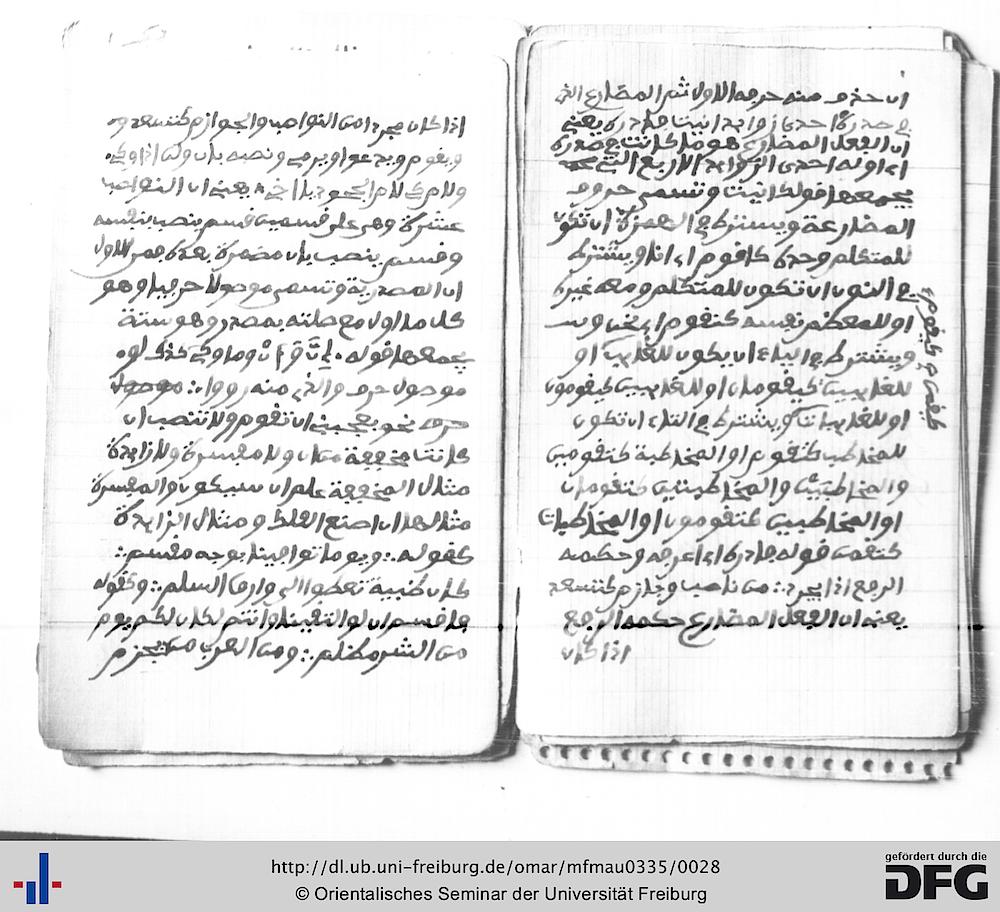 ان حذف منه حرفه الاول ثم المضارع الذي
في صدره احدى زوايد انيت فادره يعني
ان الفعل المضارع هو ما كانت في صدره
اي اوله احدى الزوايد الاربع التي
يجمعها قولك انيت وتسمى حروف
المضارعة ويشترط في الهمزة ان تكون
للمتكلم وحده كاقوم اي انا ويشترط
في النون ان تكون للمتكلم ومعه غيره
او للمعظم نفسه كنقوم اي نحن
ويشترط في الياء ان يكون للغايب او
للغايبين كيقومان او للغايبين كيقومون
او للغايبات ويشترط في التاء ان تكون
للمخاطب كتقوم او المخاطبة كتقومين
والمخاطبين والمخاطبتين كتقومان
او المخاطبين كتقومون او المخاطبات
كتقمن قوله فادره اي اعرفه وحكمه
الرفع اذا يجرد من ناصب وجازم كتسعد
يعني ان الفعل المضارع حكمه الرفع
اذا كان
كيقمن كيقوم
اذا كان مجردا من النواصب والجوازم كتسعد
ويقوم ويدعو ويرمي ونصبه بان ولن اذا وكي
ولام كي لام الجحود يا اخي يعني ان النواصب
عشرة وهي على قسمين قسم ينصب بنفسه
وقسم ينصب بان مضمرة بعده فمن الاول
ان المصدرية وتسمى موصولا حرفيا وهو
كل ما اول مع صلته بمصدر وهو ستة
يجمعها قوله ان وان وما وكي كذا لو
موصول حرف والذي منه رووا
حرف نحو يعجبني ان تقوم ولا تنصب ان
كانت مخففة من ان ولا مفسرة ولا زايدة
مثال المخففة علم ان سيكون والمفسرة
مثالها ان اصنع الفلك ومثال الزايدة
كقوله ويوما توافينا بوجه مقسم
كان ظبية تعطوا الى وارق السلم وكقوله
فاقسم ان لو التقينا وانتم لكان لكم يوم
من الشر مظلم ومن العرب من يجزم
http://dl.ub.uni-freiburg.de/omar/mfmau0335/0028
© Orientalisches Seminar der Universität Freiburg
gefördert durch die
DFG